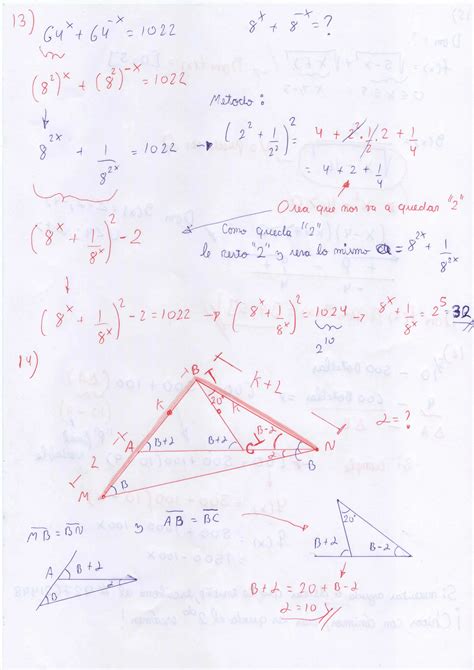 13) 64^x + 64^-x = 1022     8^x + 8^-x = ?
(8²)^x + (8²)^-x = 1022
Metodo:
8^2x + 1/8^2x = 1022 → (2² + 1/2²)² = 4 + 2².1/2².2 + 1/4
= 4 + 2 + 1/4
O sea que nos va a quedar "2"
Como queda "2"
le resto "2" y sera lo mismo a = 8^2x + 1/8^2x
(8^x + 1/8^x)² - 2
(8^x + 1/8^x)² - 2 = 1022 → (8^x + 1/8^x)² = 1024 → 8^x + 1/8^x = 2⁵ = 32
2¹⁰
14)
B
K+2
20°
K
K
2 = ?
A
B+2
B+2
C
B-2
N
2
2
M
B
B
MB = BN y AB = BC
A
B+2
B
2
20°
B+2
B-2
B+2 = 20 + B-2
2 = 10